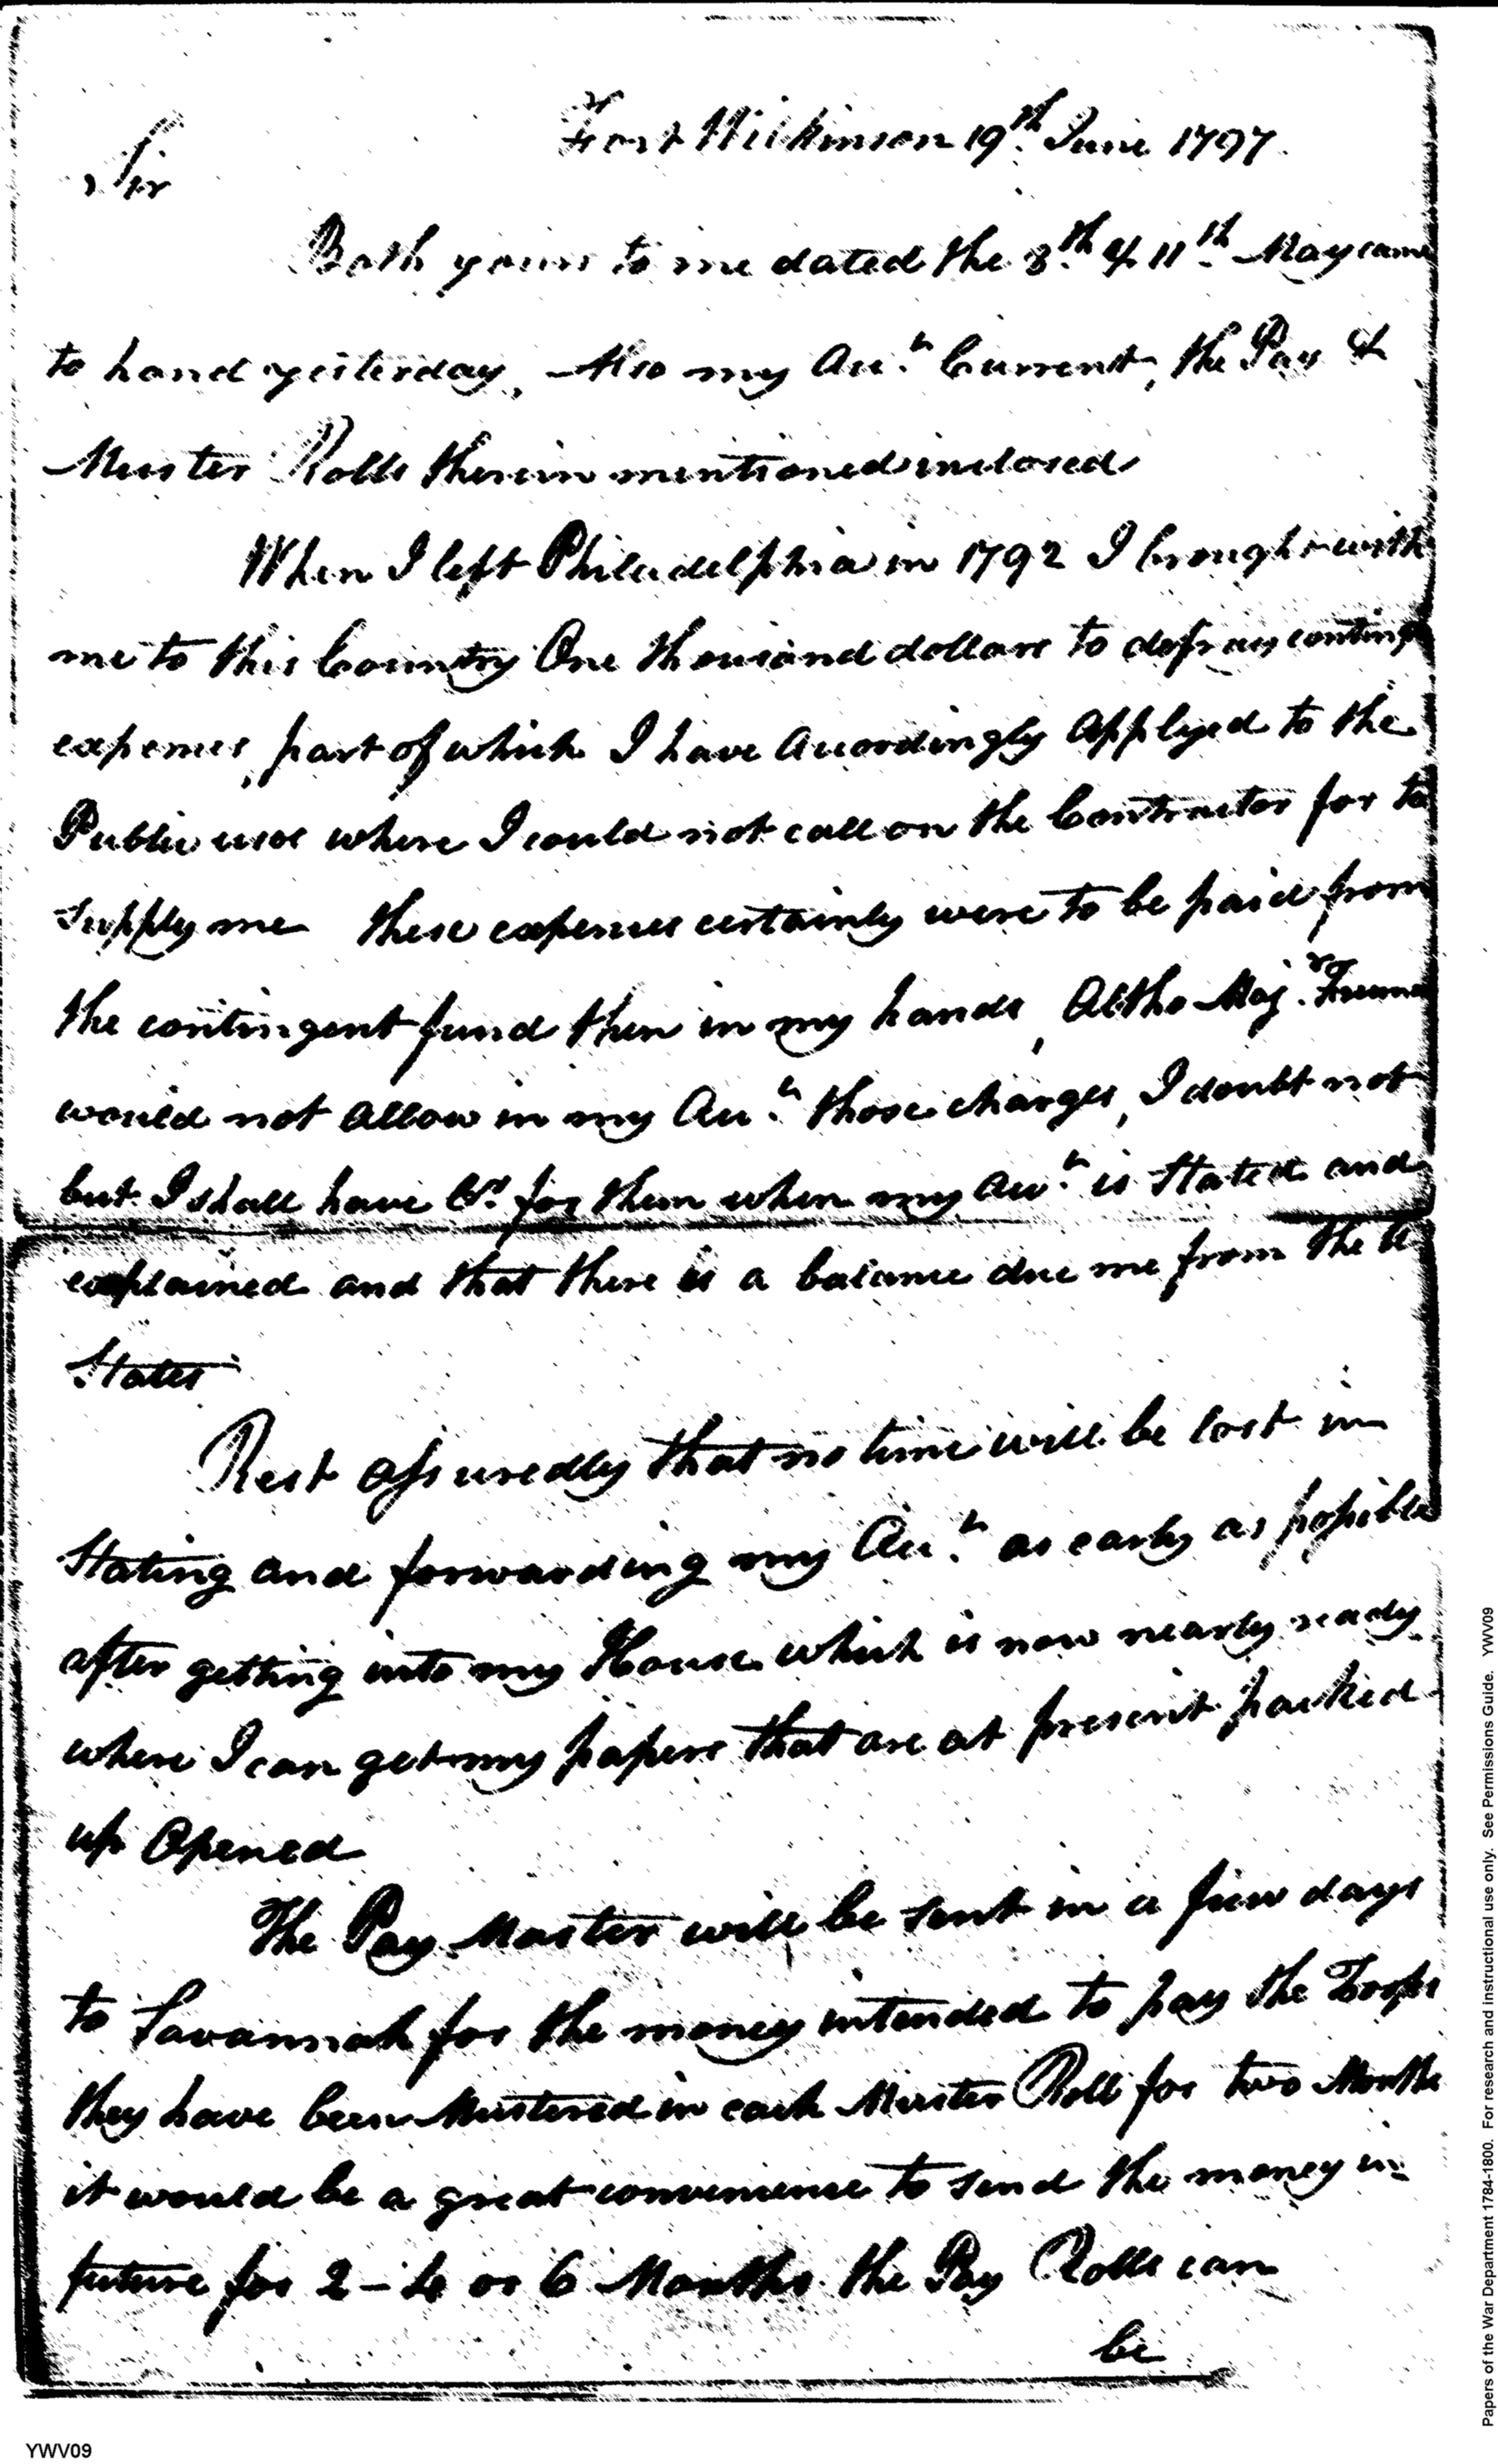 Fort Wilkinson 19th June 1797.
Sir
Both yours to me dated the 8th & 11th May came
to hand yesterday, Also my Acct Current, the Pay &
Muster Rolls therein mentioned inclosed
When I left Philadelphia in 1792 I brought with
me to this Country One thousand dollars to defray conting
expenses, part of which I have Accordingly Applyed to the
Public use where I could not call on the Contractor for to
supply me these expenses certainly were to be paid from
the contingent fund then in my hands, Altho Majr. Freem
would not Allow in my Acct those charges, I doubt not
but I shall have Cr. for them when my Acct is Stated and
explained and that there is a balance due me from the U
States
Rest assuredly that no time will be lost in
Stating and forwarding my Acct as early as possible
after getting into my House which is now nearly ready
where I can get my papers that are at present packed
up Opened
The Pay Master will be sent in a few days
to Savannah for the money intended to pay the Troops
they have been Mustered in each Muster Roll for two Months
it would be a great convenience to send the money in
future for 2 - 4 or 6 Months the Pay Rolls can
be
YWV09
Papers of the War Department 1784-1800. For research and instructional use only. See Permissions Guide. YWV09